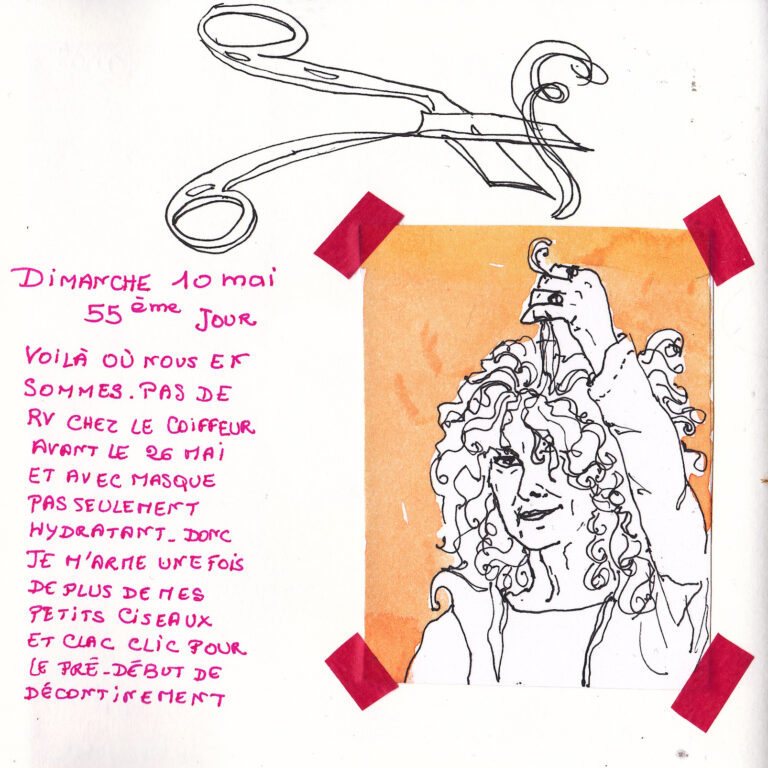 DIMANCHE 10 mai
55ème JOUR
VOILÀ OÙ NOUS EN
SOMMES. PAS DE
RV CHEZ LE COIFFEUR
AVANT LE 26 MAI
ET AVEC MASQUE
PAS SEULEMENT
HYDRATANT_ DONC
JE M'ARME UNE FOIS
DE PLUS DE MES
PETITS CISEAUX
ET CLAC CLIC POUR
LE PRÉ-DÉBUT DE
DÉCONFINEMENT